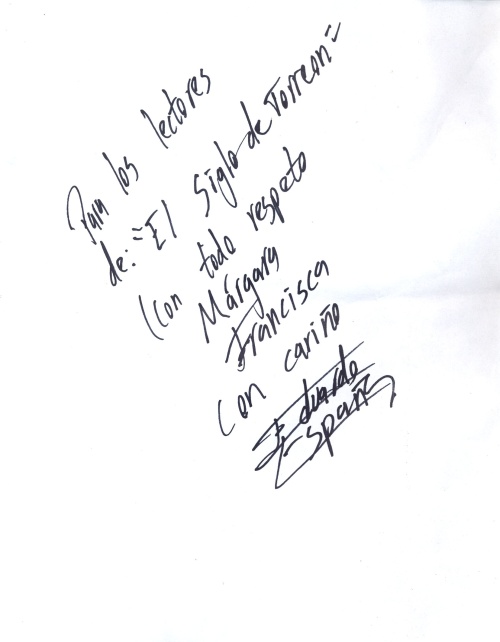 Para los lectores
de: "El Siglo de Torreon"
Con todo respeto
Márgara
Francisca
con cariño
Eduardo
España